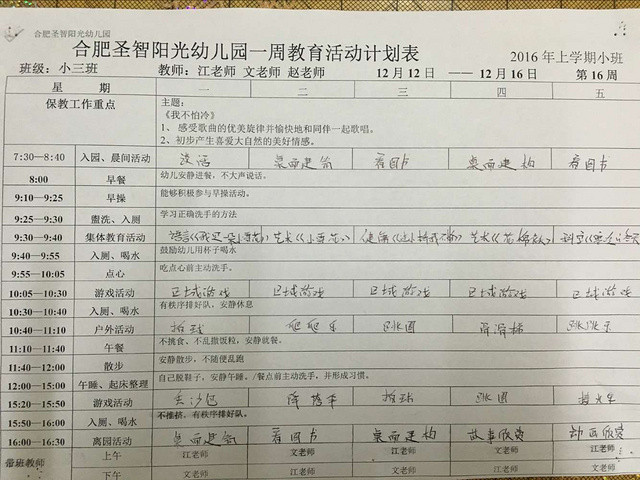 合肥圣智阳光幼儿园
合肥圣智阳光幼儿园一周教育活动计划表
2016年上学期小班
班级：小三班 教师：江老师 文老师 赵老师 12月12日 —— 12月16日 第16周
星 期 一 二 三 四 五
保教工作重点
主题：
《我不怕冷》
1、感受歌曲的优美旋律并愉快地和同伴一起歌唱。
2、初步产生喜爱大自然的美好情感。
7:30—8:40 入园、晨间活动 桌面建构 看图书 桌面建构 看图书
8:00 早餐 幼儿安静进餐，不大声说话。
9:10—9:25 早操 能够积极参与早操活动。
9:25—9:30 盥洗、入厕 学习正确洗手的方法
9:30—9:40 集体教育活动 语言 艺术 健康 艺术
9:40—9:55 入厕、喝水 鼓励幼儿用杯子喝水
9:55—10:05 点心 吃点心前主动洗手。
10:05—10:30 游戏活动 区域游戏 区域游戏 区域游戏 区域游戏 区域游戏
10:30—10:40 入厕、喝水 有秩序排好队，安静休息
10:40—11:10 户外活动 拍球 跳圈 滑滑梯
11:10—11:40 午餐 不挑食、不乱撒饭粒，安静就餐。
11:40—12:00 散步 安静散步，不随便乱跑
12:00—15:00 午睡、起床整理 自己脱鞋子，安静午睡。/餐点前主动洗手，并形成习惯。
15:20—15:50 游戏活动 丢沙包 拍球 跳圈
15:50—16:00 入厕、喝水 不推挤，有秩序排好队。
16:00—16:30 离园活动 桌面建构 看图书 桌面建构 故事欣赏 动画欣赏
带班教师 上午 江老师 文老师 江老师 文老师 江老师
下午 文老师 江老师 文老师 江老师 文老师